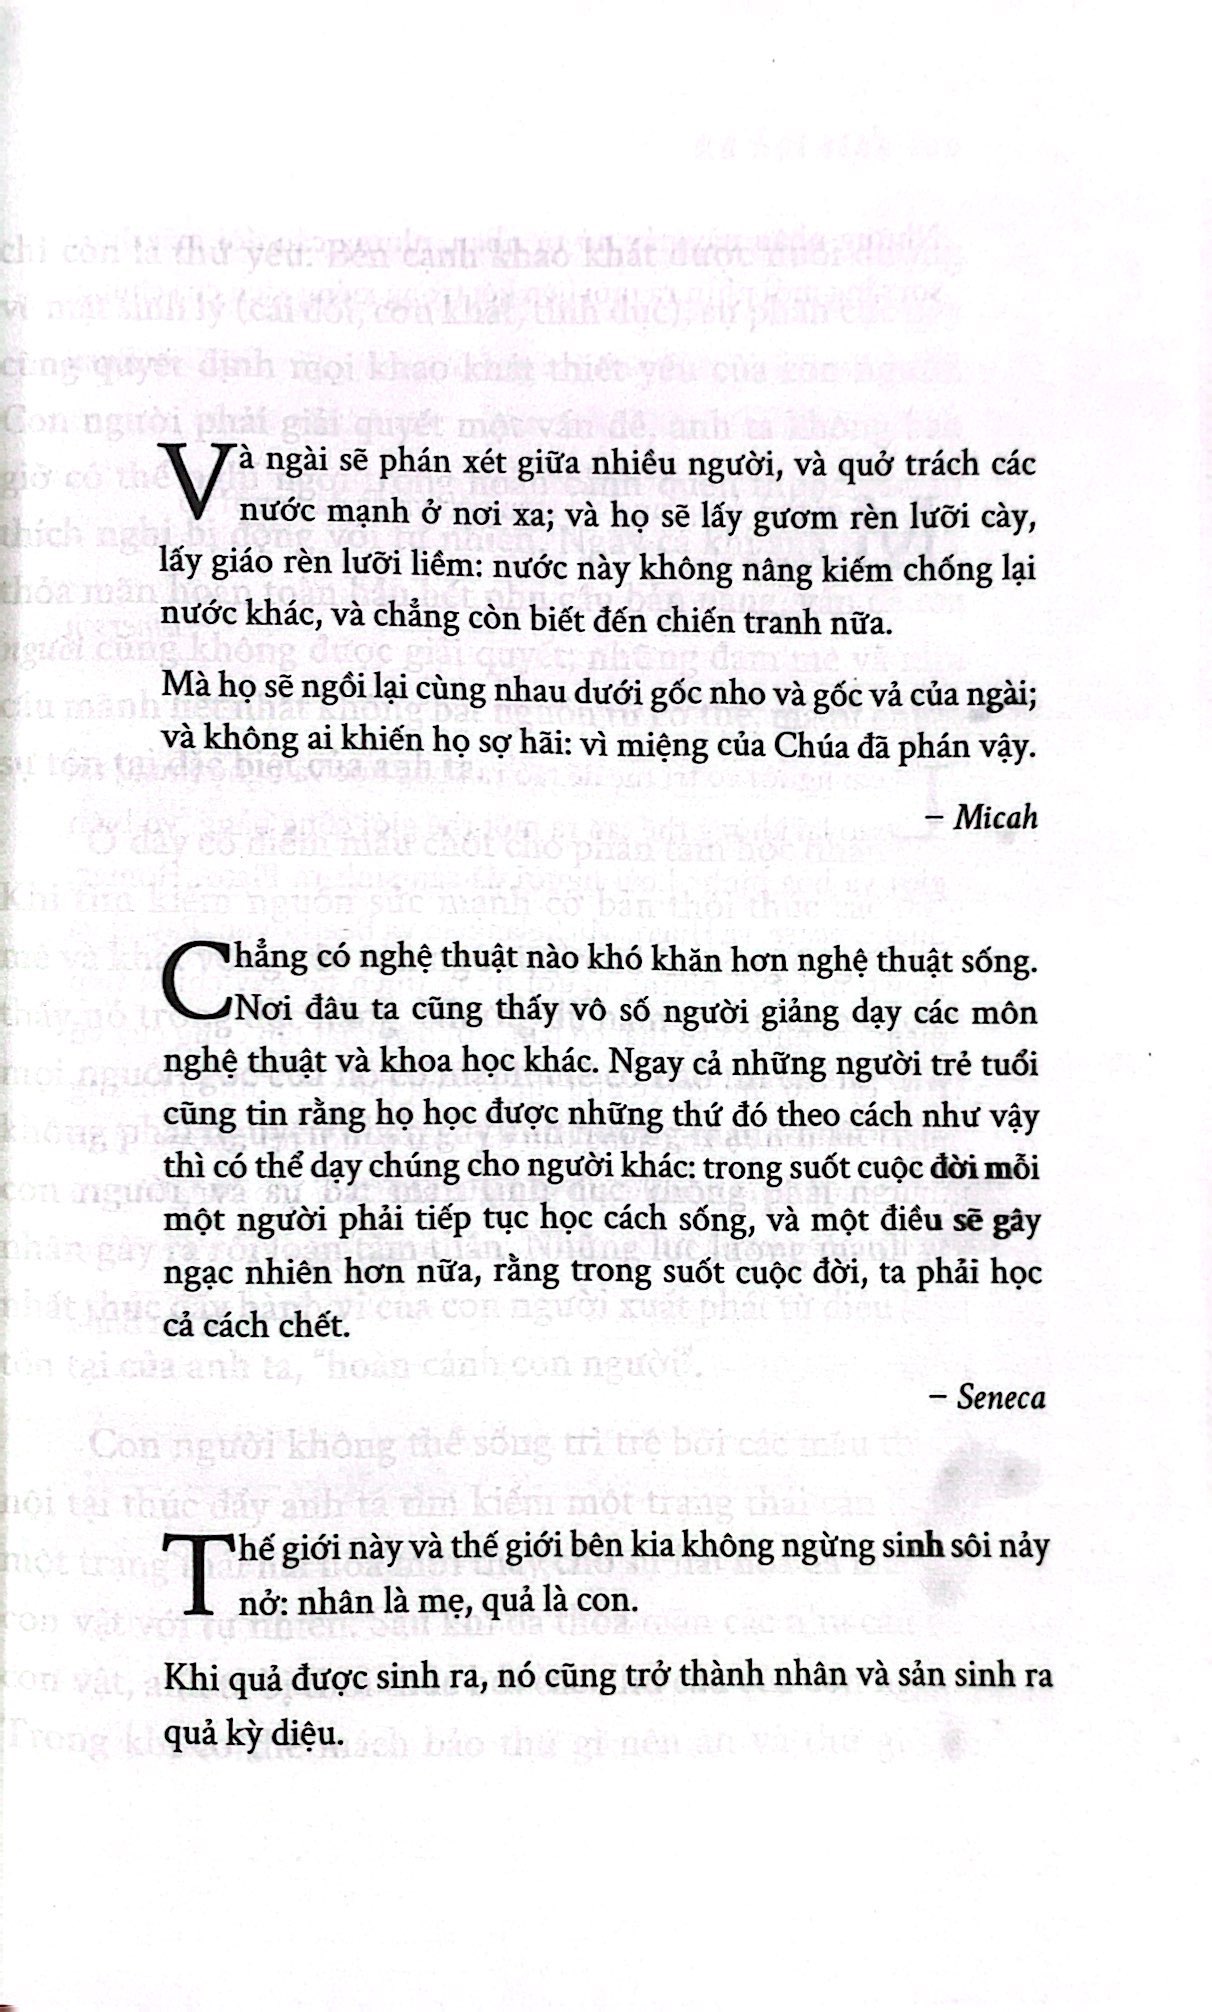 Và ngài sẽ phán xét giữa nhiều người, và quở trách các
nước mạnh ở nơi xa; và họ sẽ lấy gươm rèn lưỡi cày,
lấy giáo rèn lưỡi liềm: nước này không nâng kiếm chống lại
nước khác, và chẳng còn biết đến chiến tranh nữa.
Mà họ sẽ ngồi lại cùng nhau dưới gốc nho và gốc vả của ngài;
và không ai khiến họ sợ hãi: vì miệng của Chúa đã phán vậy.
– Micah
Chẳng có nghệ thuật nào khó khăn hơn nghệ thuật sống.
Nơi đâu ta cũng thấy vô số người giảng dạy các môn
nghệ thuật và khoa học khác. Ngay cả những người trẻ tuổi
cũng tin rằng họ học được những thứ đó theo cách như vậy
thì có thể dạy chúng cho người khác: trong suốt cuộc đời mỗi
một người phải tiếp tục học cách sống, và một điều sẽ gây
ngạc nhiên hơn nữa, rằng trong suốt cuộc đời, ta phải học
cả cách chết.
– Seneca
Thế giới này và thế giới bên kia không ngừng sinh sôi nảy
nở: nhân là mẹ, quả là con.
Khi quả được sinh ra, nó cũng trở thành nhân và sản sinh ra
quả kỳ diệu.